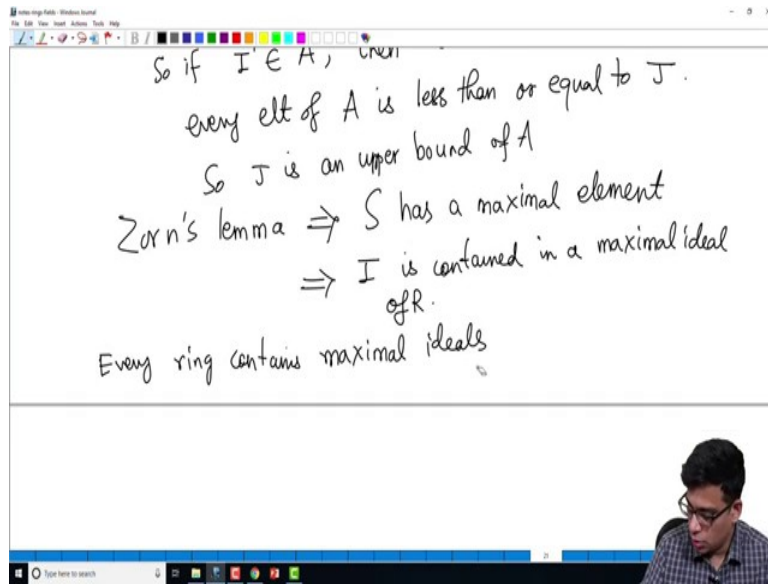 notes rings-fields - Windows Journal
File Edit View Insert Actions Tools Help
So if I ∈ A, then
every elt of A is less than or equal to J.
So J is an upper bound of A
Zorn's lemma ⇒ S has a maximal element
⇒ I is contained in a maximal ideal
of R.
Every ring contains maximal ideals
21
Type here to search